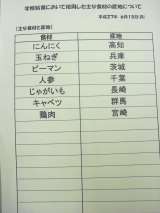 学校給食において使用した主な食材の産地について
平成27年 6月15日(月)
(主な食材と産地)
食材 産地
にんにく 高知
玉ねぎ 兵庫
ピーマン 茨城
人参 千葉
じゃがいも 長崎
キャベツ 群馬
鶏肉 宮崎